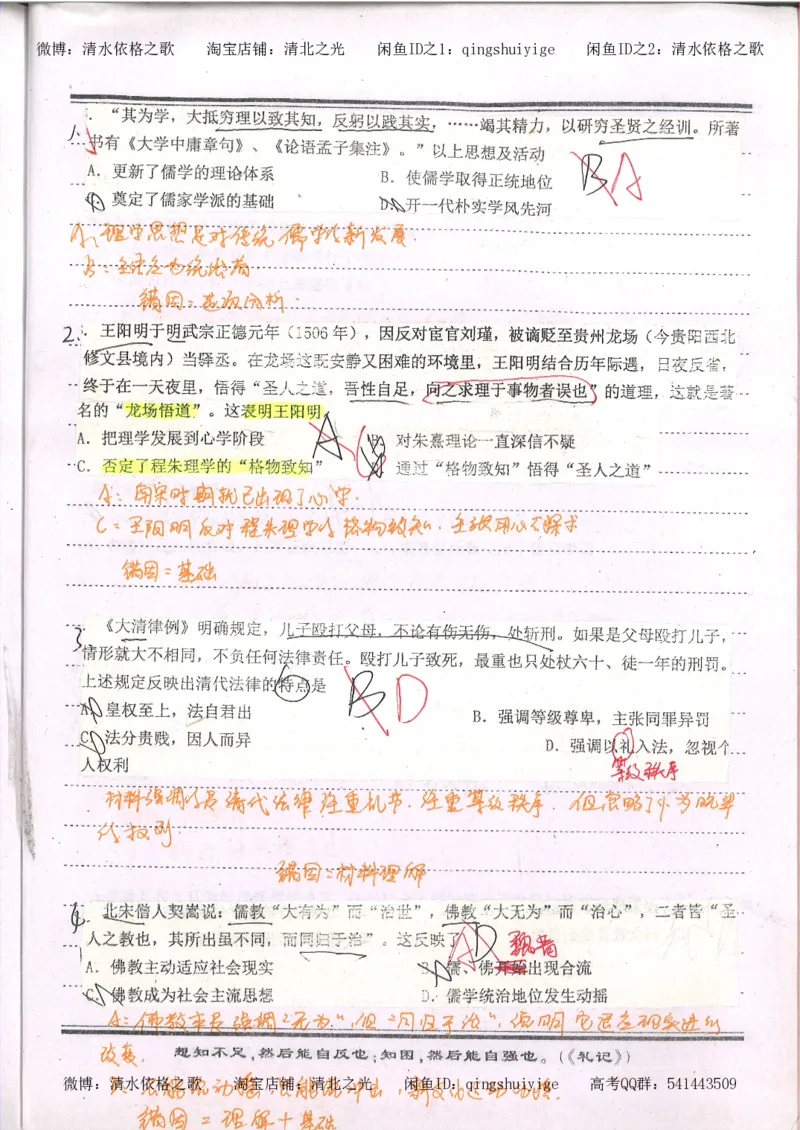 微博：清水依格之歌 淘宝店铺：清北之光 闲鱼ID之1：qingshuiyige 闲鱼ID之2：清水依格之歌
1. “其为学，大抵穷理以致其知，反躬以践其实，……竭其精力，以研穷圣贤之经训。所著
书有《大学中庸章句》、《论语孟子集注》。”以上思想及活动
A．更新了儒学的理论体系 B．使儒学取得正统地位 B A
奠定了儒家学派的基础 开一代朴实学风先河
A：理学思想是对传统儒学的新发展．
B：
错因：选项分析．
2. ．王阳明于明武宗正德元年（1506年），因反对宦官刘瑾，被谪贬至贵州龙场（今贵阳西北
修文县境内）当驿丞。在龙场这既安静又困难的环境里，王阳明结合历年际遇，日夜反省，
终于在一天夜里，悟得“圣人之道，吾性自足，向之求理于事物者误也”的道理，这就是著
名的“龙场悟道”。这表明王阳明
A．把理学发展到心学阶段 A C 对朱熹理论一直深信不疑
C．否定了程朱理学的“格物致知” 通过“格物致知”悟得“圣人之道”
A：南宋时期就已出现了心学．
C：王阳明反对程朱理学的格物致知．主张用心去探求
错因：基础
3 《大清律例》明确规定，儿子殴打父母，不论有伤无伤，处斩刑。如果是父母殴打儿子，
情形就大不相同，不负任何法律责任。殴打儿子致死，最重也只处杖六十、徒一年的刑罚。
上述规定反映出清代法律的特点是
A．皇权至上，法自君出 B D B．强调等级尊卑，主张同罪异罚
C．法分贵贱，因人而异 D．强调以礼入法，忽视个
人权利 等级秩序
材料强调的是清代法律注重礼节．注重等级秩序．但忽略了
的权利
错因：材料理解
4. 北宋僧人契嵩说：儒教“大有为”而“治世”，佛教“大无为”而“治心”，二者皆“圣
人之教也，其所出虽不同，而同归于治”。这反映了 A D
A．佛教主动适应社会现实 B．儒、佛开始出现合流
C．佛教成为社会主流思想 D．儒学统治地位发生动摇
A：佛教本是强调“无为”，但“同归于治”，说明它是在现实进行
改变．
想知不足，然后能自反也；知困，然后能自强也。（《礼记》）
微博：清水依格之歌 淘宝店铺：清北之光 闲鱼ID：qingshuiyige 高考QQ群：541443509
错因：理解＋基础